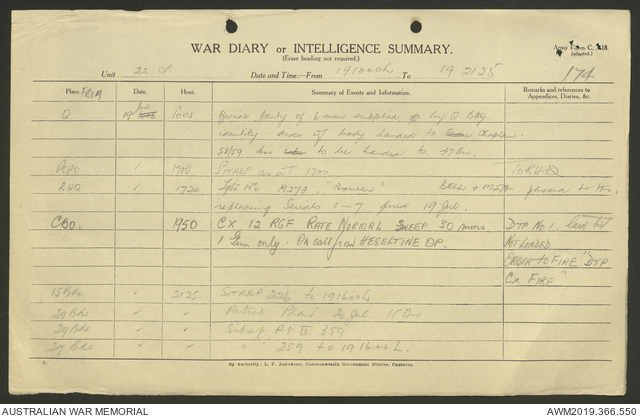 WAR DIARY or INTELLIGENCE SUMMARY.
(Erase heading not required.)
Army Form C. 2118.
(adapted.)
174
Unit 22 CP Date and Time.—From 191600h To 19 2125
Place. FROM Date. Hour. Summary of Events and Information. Remarks and references to Appendices, Diaries, &c.
Q 19 Jul 1005 Burial party of 6 men supplied by Q Bty
identity discs of body handed to Chaplain.
58/59 to be handed to 47 Bn.
1700 SITREP as at 1700. To RHQ
RHQ 1720 M273, "Bowen"
replacing Serials 1-7 fired 19 Jul.
CBO. 1950 CX 12 RGF RATE NORMAL SWEEP 30 mins. DTP No 1.
1 Gun only. On call from HESELTINE OP. Not LOADED
ORDER TO FIRE "DTP
CX FIRE"
15 Bde 2125 SITREP 226 to 191600h
29 Bde Patrol Plan 20 Jul. 15 Bn
29 Bde Sitrep Pt II 359
29 Bde " " 259 to 191600h.
1. By Authority: L. F. Johnston, Commonwealth Government Printer, Canberra.
AUSTRALIAN WAR MEMORIAL AWM2019.366.550